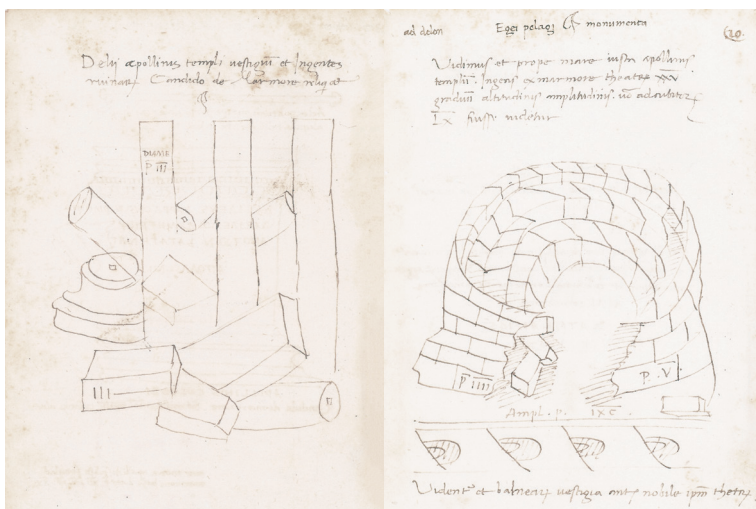 Delii apollinis templi vestigium et Ingentes
ruinae Candido de Marmore reliquiae
DIANE
P III
III
ad delon Egei pelagi monumenta 20.
Vidimus et prope mare iuxta apollinis
templum Ingens e marmore theatrum XXV
graduum altitudinis amplitudinis
IX fuisse videtur
P. IIII
P. V
Ampl. P. IXC.
Videntur et balnearum vestigia ante nobile ipsum